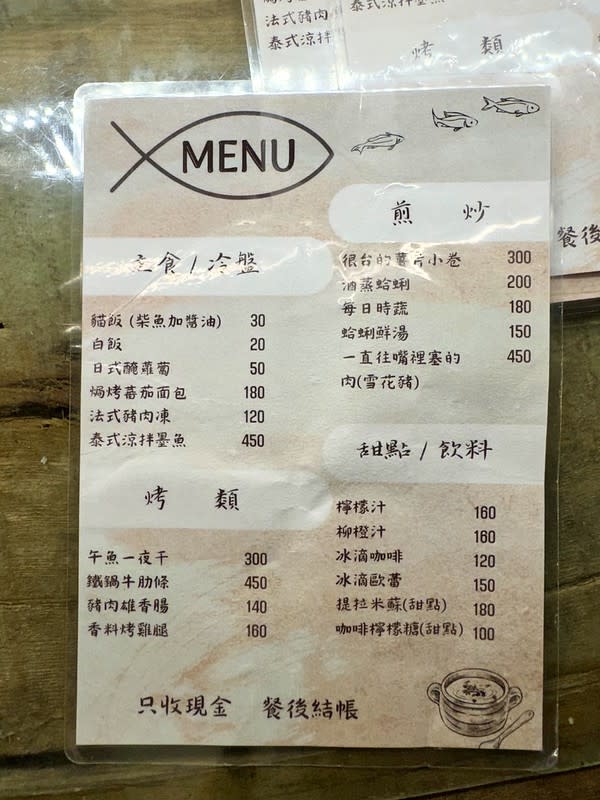 法式豬肉
泰式涼拌
泰式涼拌墨魚
烤 類
餐後
MENU
主食 / 冷盤
貓飯 (柴魚加醬油) 30
白飯 20
日式醃蘿蔔 50
焗烤蕃茄面包 180
法式豬肉凍 120
泰式涼拌墨魚 450
烤 類
午魚一夜干 300
鐵鍋牛肋條 450
豬肉雄香腸 140
香料烤雞腿 160
煎 炒
很台的薯片小卷 300
酒蒸蛤蜊 200
每日時蔬 180
蛤蜊鮮湯 150
一直往嘴裡塞的 450
肉(雪花豬)
甜點 / 飲料
檸檬汁 160
柳橙汁 160
冰滴咖啡 120
冰滴歐蕾 150
提拉米蘇(甜點) 180
咖啡檸檬糖(甜點) 100
只收現金 餐後結帳